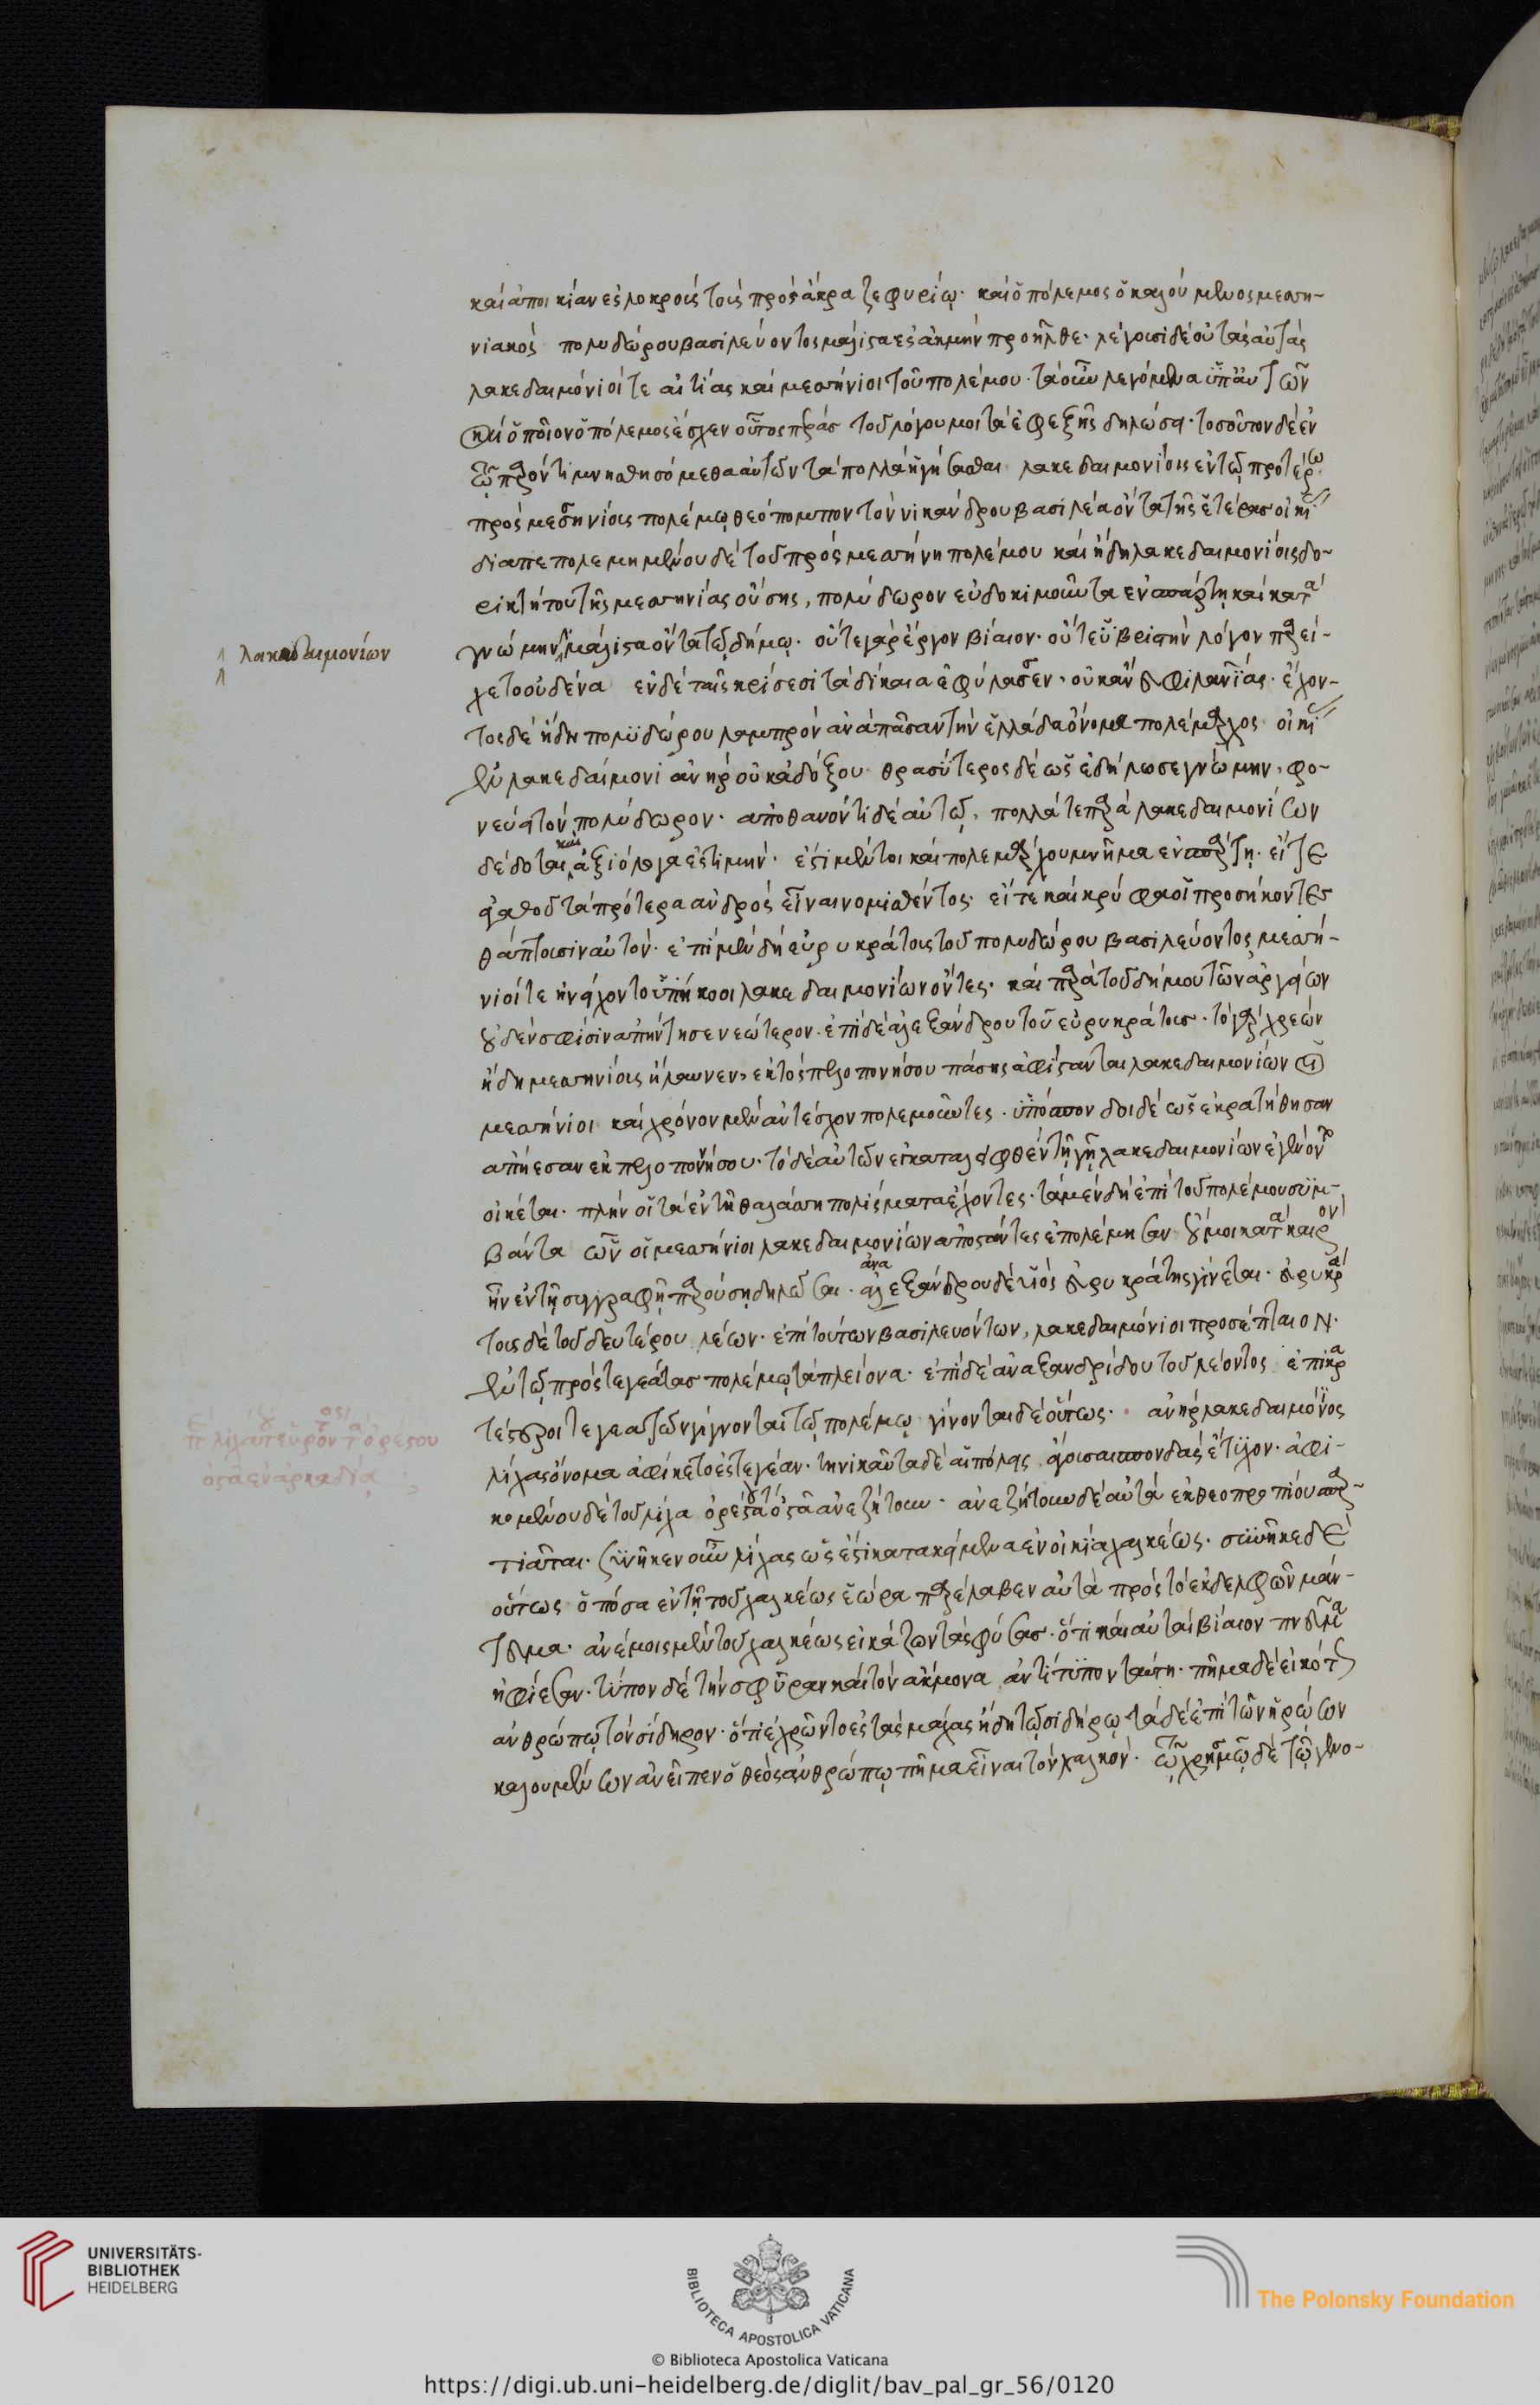 καὶ ἀποικίαν ἐς λοκροὺς τοὺς πρὸς ἄκρα ζεφυρίῳ· καὶ ὁ πόλεμος ὁ καλούμενος μεσση-
νιακὸς πολυδώρου βασιλεύοντος μάλιστα ἐς ἀκμὴν προῆλθε· λέγουσι δὲ οὐ τὰς αὐτὰς
λακεδαιμόνιοί τε αἰτίας καὶ μεσσήνιοι τοῦ πολέμου· τὰ οὖν λεγόμενα ὑπ' αὐτῶν
καὶ ὁποῖον ὁ πόλεμος ἔσχεν οὗτος πέρας τοῦ λόγου μοι τὰ ἐφεξῆς δηλώσει· τοσοῦτον δὲ ἐν
τῷ παρόντι μνησθησόμεθα αὐτῶν τὰ πολλὰ ἡγήσασθαι λακεδαιμονίοις ἐν τῷ προτέρῳ
πρὸς μεσσηνίους πολέμῳ θεόπομπον τὸν νικάνδρου βασιλέα ὄντα τῆς ἑτέρας οἰκί
διαπεπολεμημένου δὲ τοῦ πρὸς μεσσήνη πολέμου καὶ ἤδη λακεδαιμονίοις δο-
ρικτήτου τῆς μεσσηνίας οὔσης, πολύδωρον εὐδοκιμοῦντα ἐν σπάρτῃ καὶ κατὰ
γνώμην μάλιστα ὄντα τῷ δήμῳ· οὔτε γὰρ ἔργον βίαιον· οὔτε ὑβριστὴν λόγον παρεί-
λακεδαιμονίων
χετο οὐδένα ἐν δὲ ταῖς κρίσεσι τὰ δίκαια ἐφύλασσεν· οὐκ ἄνευ φιλανίας· ἔχον-
τος δὲ ἤδη πολυδώρου λαμπρὸν ἀνὰ πᾶσαν τὴν ἑλλάδα ὄνομα πολέμαρχος οἰκί
ἐν λακεδαίμονι ἀνὴρ οὐκ ἀδόξου θρασύτερος δὲ ὡς ἐδήλωσε γνώμην, φο-
νεύει τὸν πολύδωρον· ἀποθανόντι δὲ αὐτῷ, πολλά τε παρὰ λακεδαιμονίων
δέδοται καὶ ἀξιόλογα ἐς τιμήν· ἔστι μέντοι καὶ πολεμάρχου μνῆμα ἐν σπάρτῃ· εἴτε
ἀγαθοῦ τὰ πρότερα ἀνδρὸς εἶναι νομισθέντος· εἴτε καὶ κρύφα οἱ προσήκοντες
θάπτουσιν αὐτόν· ἐπὶ μὲν δὴ εὐρυκράτους τοῦ πολυδώρου βασιλεύοντος μεσσή-
νιοί τε ἠνείχοντο ὑπήκοοι λακεδαιμονίων ὄντες· καὶ παρὰ τοῦ δήμου τῶν ἀργείων
οὐδέν σφισιν ἀπήντησε νεώτερον· ἐπὶ δὲ ἀλεξάνδρου τοῦ εὐρυκράτους· τὸ γὰρ χρεὼν
ἤδη μεσσηνίους ἤλαυνεν, ἐκτὸς πελοποννήσου πάσης ἀφίστανται λακεδαιμονίων οἱ
μεσσήνιοι καὶ χρόνον μὲν ἀντέσχον πολεμοῦντες· ὑπόσπονδοι δὲ ὡς ἐκρατήθησαν
ἀπῄεσαν ἐκ πελοποννήσου· τὸ δὲ αὐτῶν ἐγκαταλειφθὲν τῇ γῇ λακεδαιμονίων ἐγένοντο
οἰκέται· πλὴν οἱ τὰ ἐν τῇ θαλάσσῃ πολίσματα ἔχοντες· τὰ μὲν δὴ ἐπὶ τοῦ πολέμου συμ-
βάντα ὧν οἱ μεσσήνιοι λακεδαιμονίων ἀποστάντες ἐπολέμησαν οὔ μοι κατὰ καιρὸν
ἦν ἐν τῇ συγγραφῇ παρούσῃ δηλῶσαι· ἀνα ἀλεξάνδρου δὲ υἱὸς εὐρυκράτης γίνεται· εὐρυκρά
τους δὲ τοῦ δευτέρου λέων· ἐπὶ τούτων βασιλευόντων, λακεδαιμόνιοι προσέπταιον·
ἐν τῷ πρὸς τεγεάτας πολέμῳ τὰ πλείονα· ἐπὶ δὲ ἀναξανδρίδου τοῦ λέοντος ἐπικρα
τέστεροι τεγεατῶν γίγνονται τῷ πολέμῳ γίνονται δὲ οὕτως· ἀνὴρ λακεδαιμόνιος
λίχας ὄνομα ἀφίκετο ἐς τεγέαν· τηνικαῦτα δὲ αἱ πόλεις ἄγουσαι σπονδὰς ἔτυχον· ἀφι-
κομένου δὲ τοῦ λίχα ὀρέστου τὰ ὀστᾶ ἀνεζήτουν· ἀνεζήτουν δὲ αὐτὰ ἐκ θεοπροπίου σπαρ-
τιᾶται· συνῆκεν οὖν λίχας ὡς ἔστι κατακείμενα ἐν οἰκίᾳ χαλκέως· συνῆκε δὲ
οὕτως ὁπόσα ἐν τῇ τοῦ χαλκέως ἑώρα παρέλαβεν αὐτὰ πρὸς τὸ ἐκ δελφῶν μάν-
τευμα· ἀνέμοις μὲν τοῦ χαλκέως εἰκάζων τὰς φύσας· ὅτι καὶ αὐταὶ βίαιον πνεῦμα
ἠφίεσαν· τύπον δὲ τὴν σφῦραν καὶ τὸν ἄκμονα ἀντίτυπον ταύτῃ· πῆμα δὲ εἰκότως
ἀνθρώπῳ τὸν σίδηρον· ὅτι ἐχρῶντο ἐς τὰς μάχας ἤδη τῷ σιδήρῳ· τὰ δὲ ἐπὶ τῶν ἡρώων
καλουμένων ἂν εἶπεν ὁ θεὸς ἀνθρώπῳ πῆμα εἶναι τὸν χαλκόν· τῷ χρησμῷ δὲ τῷ γενο-
UNIVERSITÄTS-
BIBLIOTHEK
HEIDELBERG
BIBLIOTECA APOSTOLICA VATICANA
The Polonsky Foundation
© Biblioteca Apostolica Vaticana
https://digi.ub.uni-heidelberg.de/diglit/bav_pal_gr_56/0120